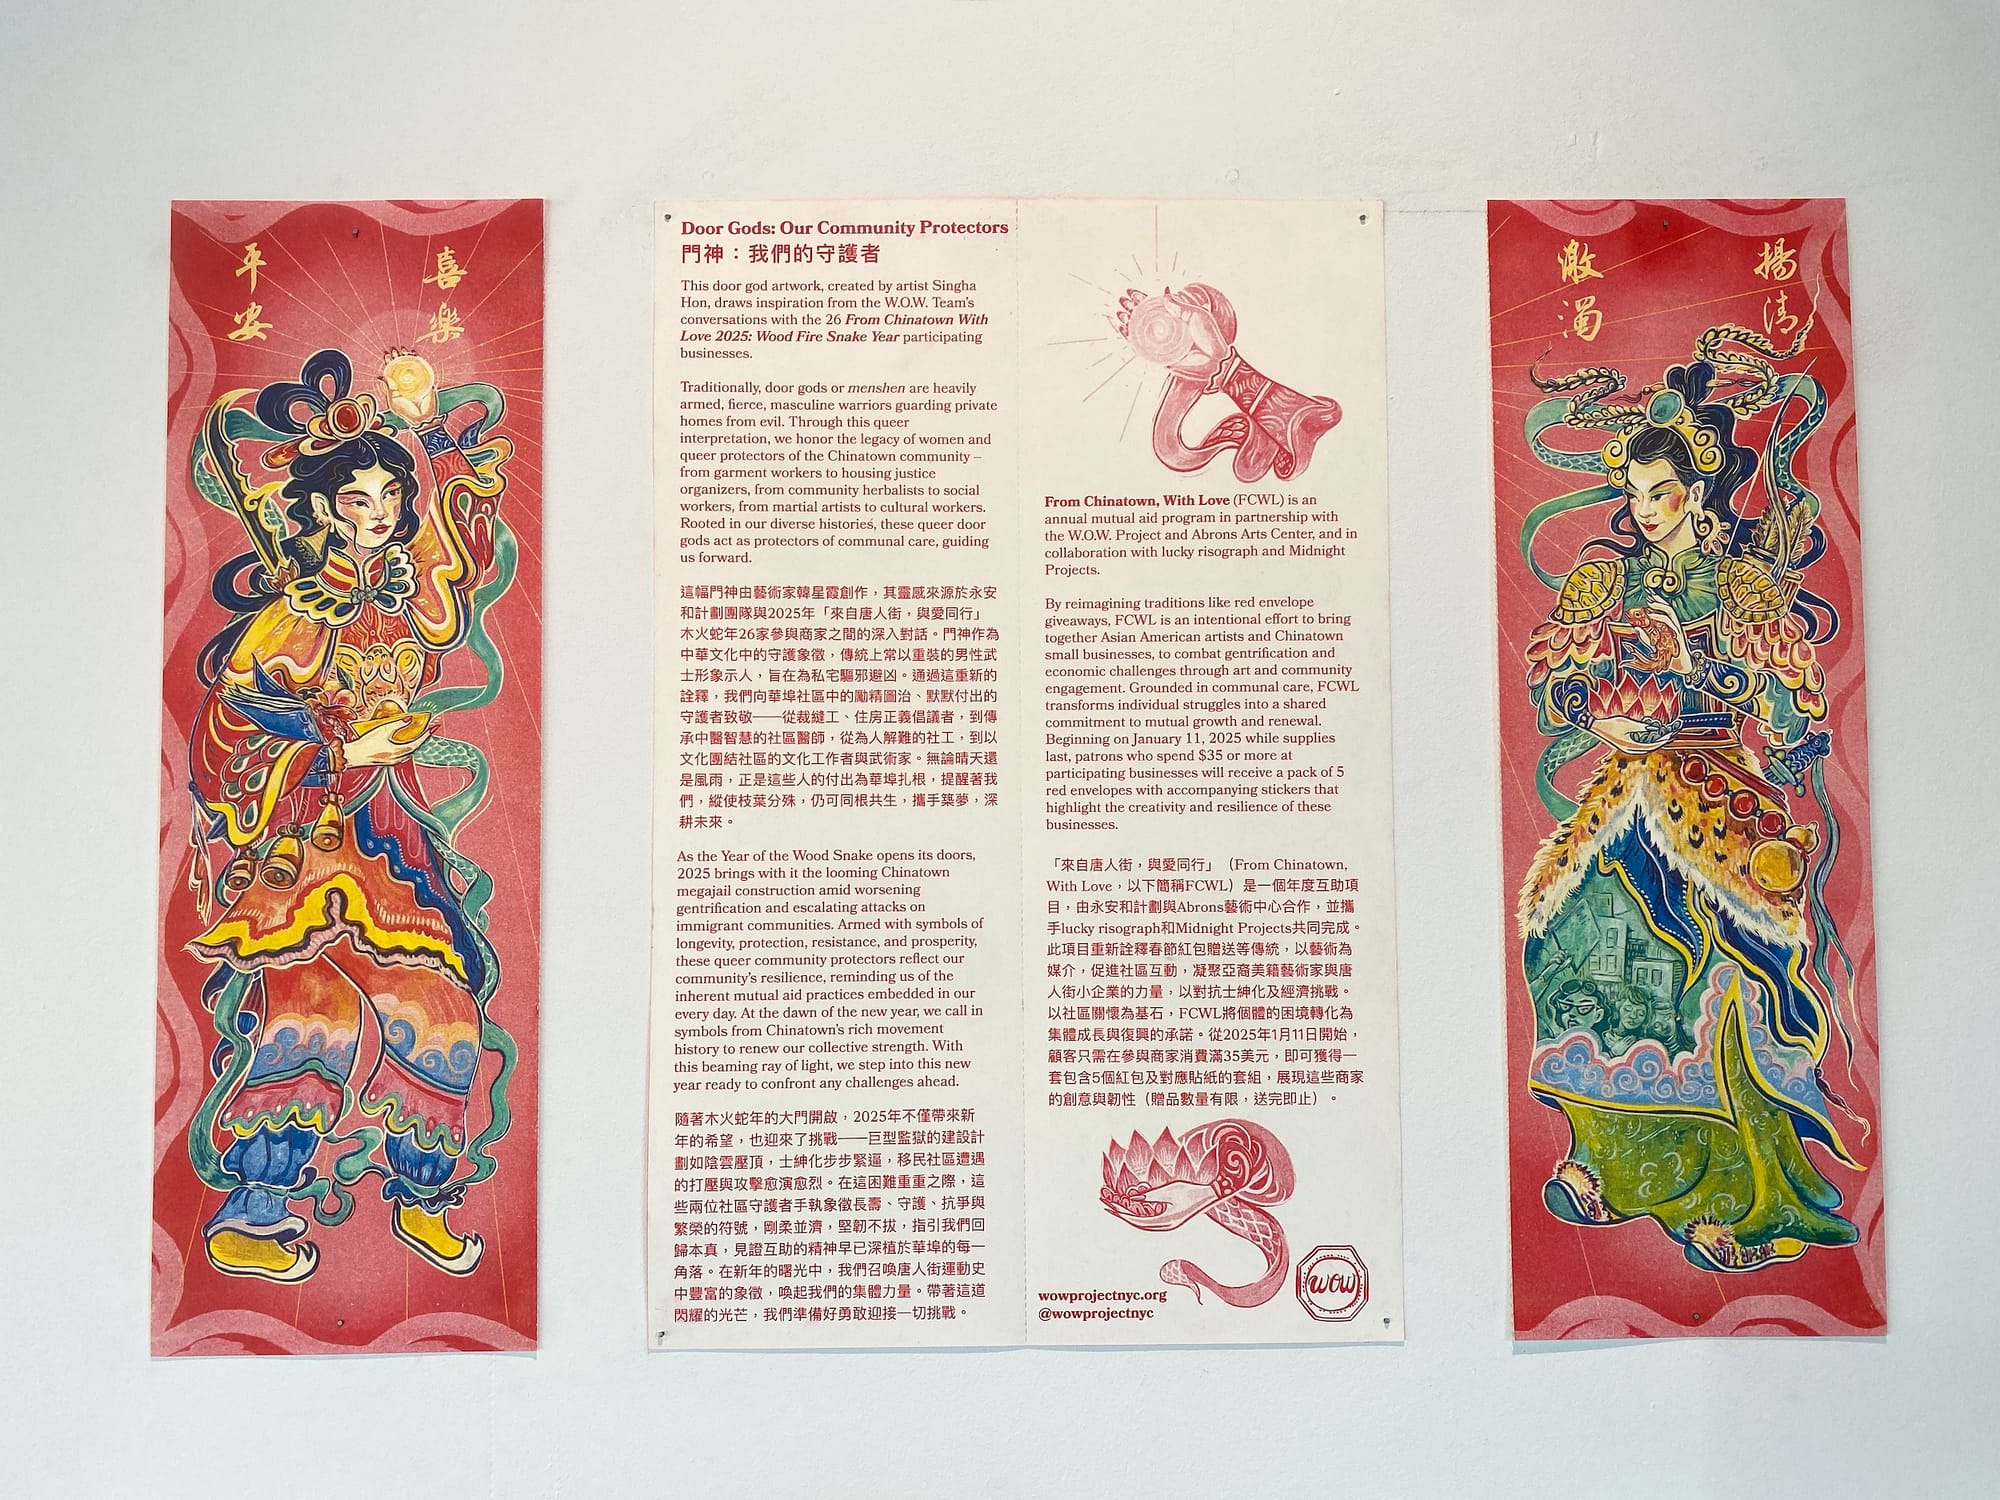 平安
喜樂
Door Gods: Our Community Protectors
門神：我們的守護者
This door god artwork, created by artist Singha
Hon, draws inspiration from the W.O.W. Team's
conversations with the 26 From Chinatown With
Love 2025: Wood Fire Snake Year participating
businesses.
Traditionally, door gods or menshen are heavily
armed, fierce, masculine warriors guarding private
homes from evil. Through this queer
interpretation, we honor the legacy of women and
queer protectors of the Chinatown community –
from garment workers to housing justice
organizers, from community herbalists to social
workers, from martial artists to cultural workers.
Rooted in our diverse histories, these queer door
gods act as protectors of communal care, guiding
us forward.
這幅門神由藝術家韓星霞創作，其靈感來源於永安
和計劃團隊與2025年「來自唐人街，與愛同行」
木火蛇年26家參與商家之間的深入對話。門神作為
中華文化中的守護象徵，傳統上常以重裝的男性武
士形象示人，旨在為私宅驅邪避凶。通過這重新的
詮釋，我們向華埠社區中的勵精圖治、默默付出的
守護者致敬——從裁縫工、住房正義倡議者，到傳
承中醫智慧的社區醫師，從為人解難的社工，到以
文化團結社區的文化工作者與武術家。無論晴天還
是風雨，正是這些人的付出為華埠扎根，提醒著我
們，縱使枝葉分殊，仍可同根共生，攜手築夢，深
耕未來。
As the Year of the Wood Snake opens its doors,
2025 brings with it the looming Chinatown
megajail construction amid worsening
gentrification and escalating attacks on
immigrant communities. Armed with symbols of
longevity, protection, resistance, and prosperity,
these queer community protectors reflect our
community's resilience, reminding us of the
inherent mutual aid practices embedded in our
every day. At the dawn of the new year, we call in
symbols from Chinatown's rich movement
history to renew our collective strength. With
this beaming ray of light, we step into this new
year ready to confront any challenges ahead.
隨著木火蛇年的大門開啟，2025年不僅帶來新
年的希望，也迎來了挑戰——巨型監獄的建設計
劃如陰雲壓頂，士紳化步步緊逼，移民社區遭遇
的打壓與攻擊愈演愈烈。在這困難重重之際，這
些兩位社區守護者手執象徵長壽、守護、抗爭與
繁榮的符號，剛柔並濟，堅韌不拔，指引我們回
歸本真，見證互助的精神早已深植於華埠的每一
角落。在新年的曙光中，我們召喚唐人街運動史
中豐富的象徵，喚起我們的集體力量。帶著這道
閃耀的光芒，我們準備好勇敢迎接一切挑戰。
From Chinatown, With Love (FCWL) is an
annual mutual aid program in partnership with
the W.O.W. Project and Abrons Arts Center, and in
collaboration with lucky risograph and Midnight
Projects.
By reimagining traditions like red envelope
giveaways, FCWL is an intentional effort to bring
together Asian American artists and Chinatown
small businesses, to combat gentrification and
economic challenges through art and community
engagement. Grounded in communal care, FCWL
transforms individual struggles into a shared
commitment to mutual growth and renewal.
Beginning on January 11, 2025 while supplies
last, patrons who spend $35 or more at
participating businesses will receive a pack of 5
red envelopes with accompanying stickers that
highlight the creativity and resilience of these
businesses.
「來自唐人街，與愛同行」（From Chinatown,
With Love，以下簡稱FCWL）是一個年度互助項
目，由永安和計劃與Abrons藝術中心合作，並攜
手lucky risograph和Midnight Projects共同完成。
此項目重新詮釋春節紅包贈送等傳統，以藝術為
媒介，促進社區互動，凝聚亞裔美籍藝術家與唐
人街小企業的力量，以對抗士紳化及經濟挑戰。
以社區關懷為基石，FCWL將個體的困境轉化為
集體成長與復興的承諾。從2025年1月11日開始，
顧客只需在參與商家消費滿35美元，即可獲得一
套包含5個紅包及對應貼紙的套組，展現這些商家
的創意與韌性（贈品數量有限，送完即止）。
wowprojectnyc.org
@wowprojectnyc
WOW
激濁
揚清